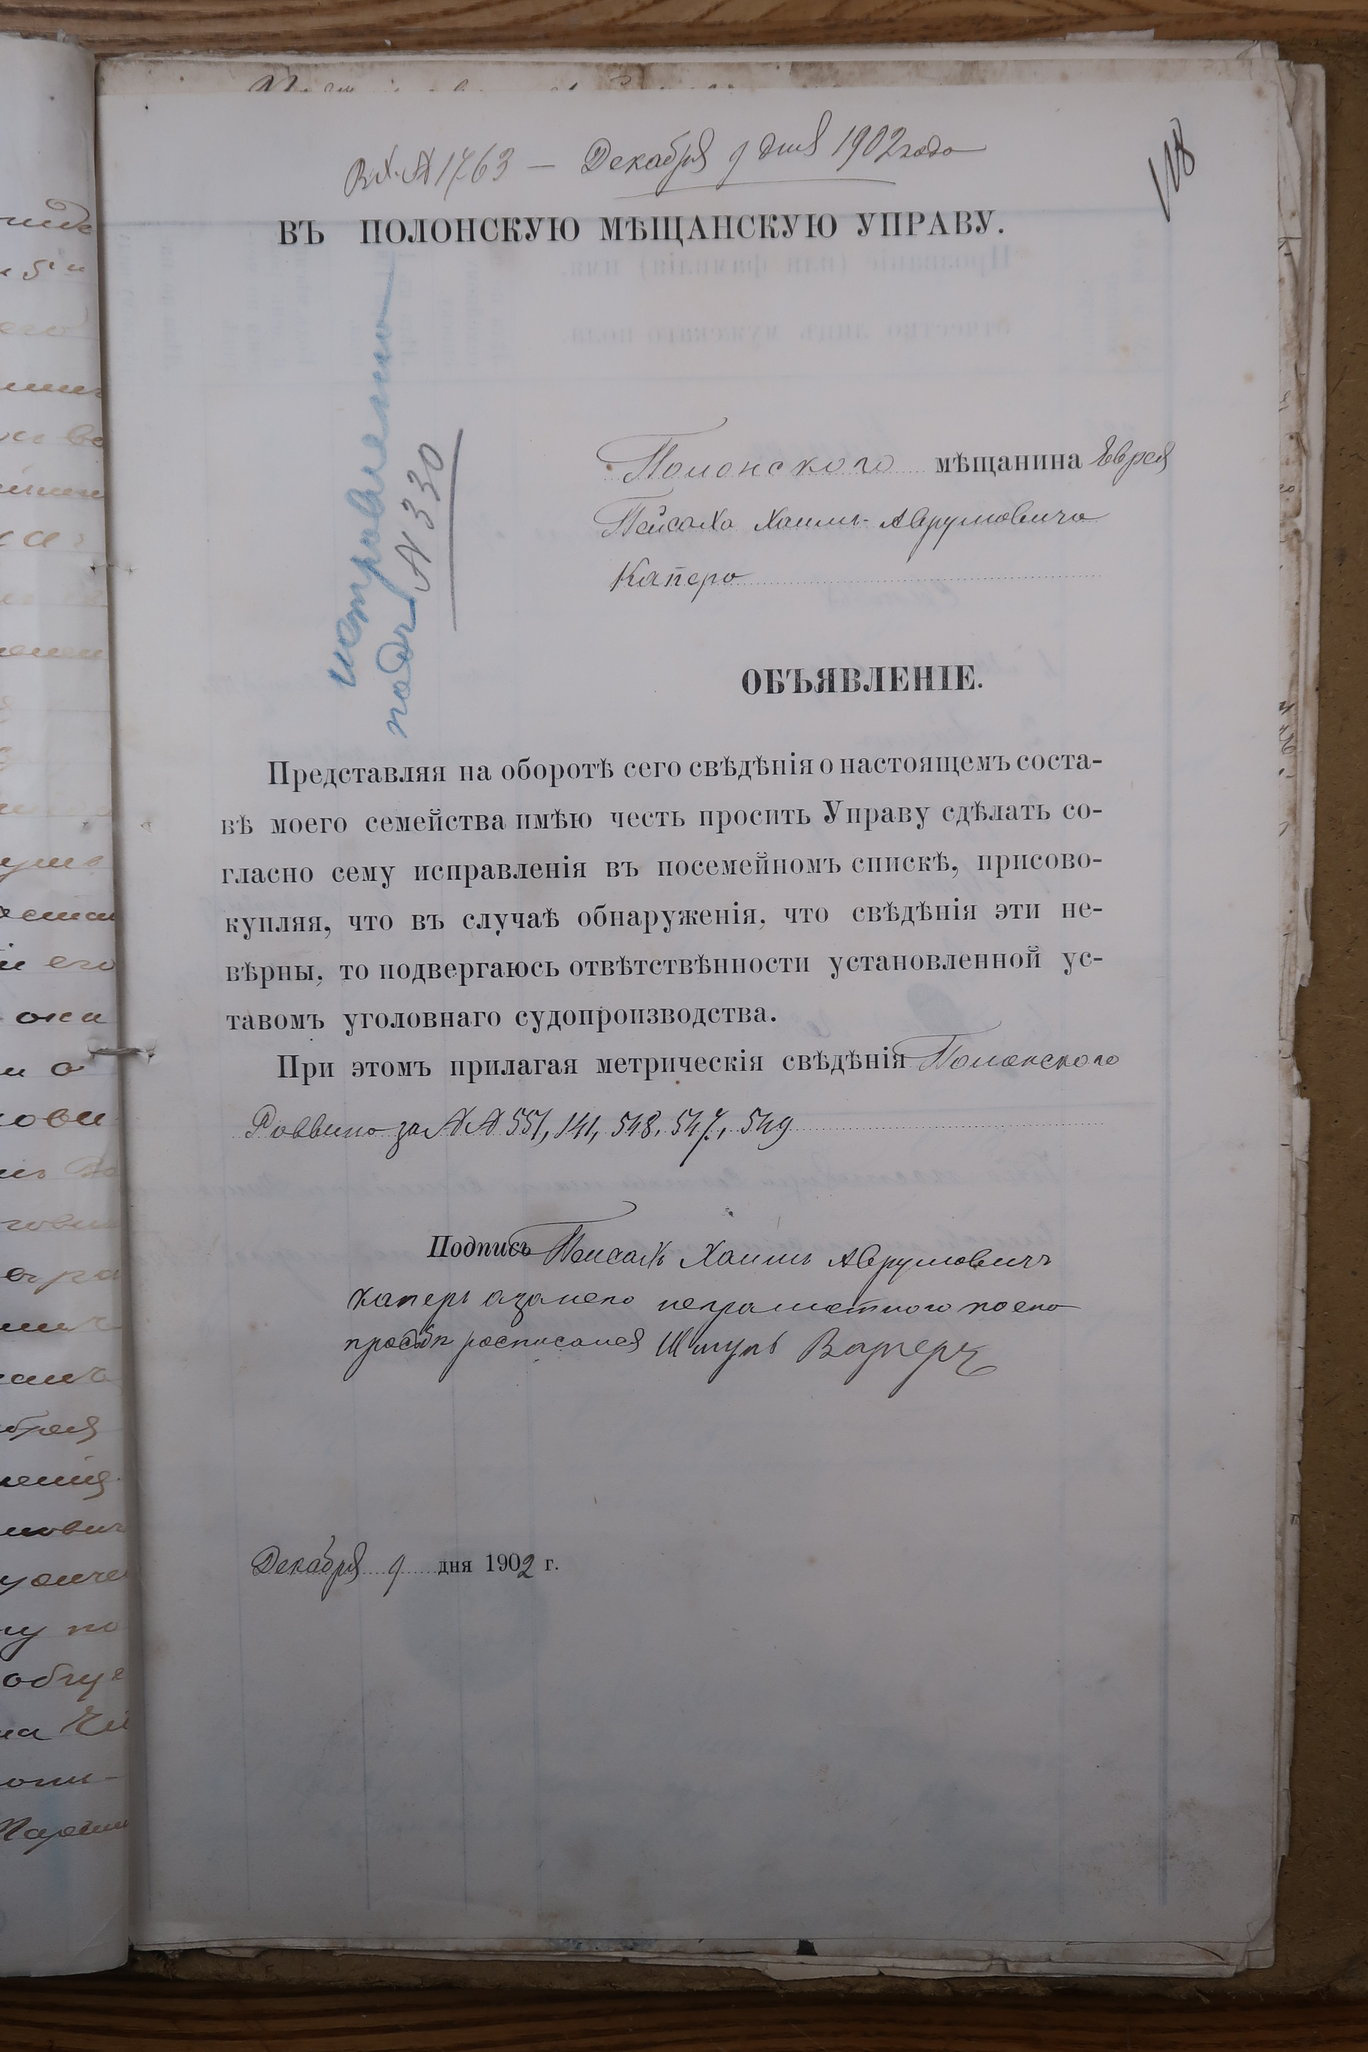 Вх. № 1763 — Декабря 9 дня 1902 года
118
ВЪ ПОЛОНСКУЮ МѢЩАНСКУЮ УПРАВУ.
исправлено
подъ № 330
Полонского мѣщанина Еврея
Пейсаха Хаимъ-Аврумовича
Капера
ОБЪЯВЛЕНІЕ.
Представляя на оборотѣ сего свѣдѣнія о настоящемъ соста-
вѣ моего семейства имѣю честь просить Управу сдѣлать со-
гласно сему исправленія въ посемейномъ спискѣ, присово-
купляя, что въ случаѣ обнаруженія, что свѣдѣнія эти не-
вѣрны, то подвергаюсь отвѣтствѣнности установленной ус-
тавомъ уголовнаго судопроизводства.
При этомъ прилагая метрическія свѣдѣнія Полонского
Раввина за №№ 551, 141, 548, 547, 549
Подпись Пейсахъ Хаимъ Аврумовичъ
Каперъ азанего неграмотного поего
прозбѣ росписался Шмуль
Декабря 9 дня 1902 г.